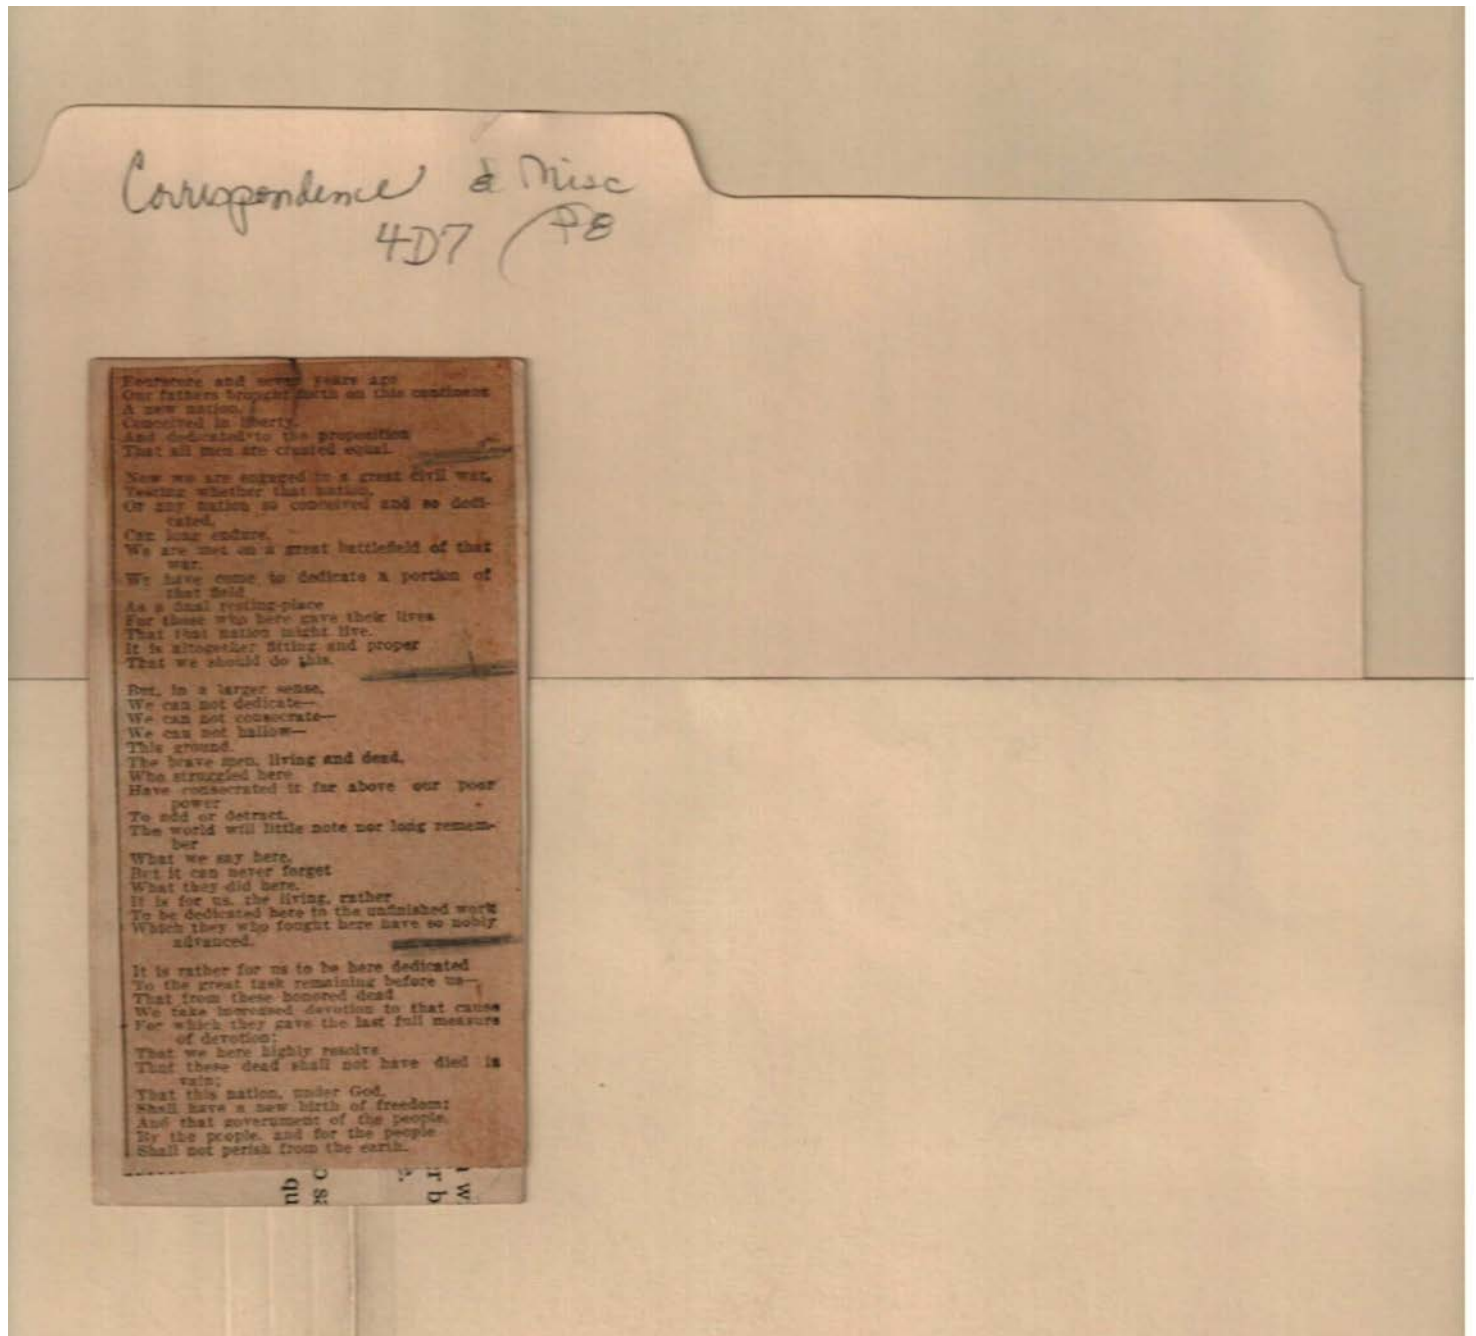 Correspondence & Misc
4D7 (P8
Fourscore and seven years ago
Our fathers brought forth on this continent
A new nation,
Conceived in liberty,
And dedicated to the proposition
That all men are created equal.
Now we are engaged in a great civil war,
Testing whether that nation,
Or any nation so conceived and so dedi-
cated,
Can long endure.
We are met on a great battlefield of that
war.
We have come to dedicate a portion of
that field
As a final resting-place
For those who here gave their lives
That that nation might live.
It is altogether fitting and proper
That we should do this.
But, in a larger sense,
We can not dedicate—
We can not consecrate—
We can not hallow—
This ground.
The brave men, living and dead,
Who struggled here
Have consecrated it far above our poor
power
To add or detract.
The world will little note nor long remem-
ber
What we say here,
But it can never forget
What they did here.
It is for us, the living, rather
To be dedicated here to the unfinished work
Which they who fought here have so nobly
advanced.
It is rather for us to be here dedicated
To the great task remaining before us—
That from these honored dead
We take increased devotion to that cause
For which they gave the last full measure
of devotion;
That we here highly resolve
That these dead shall not have died in
vain;
That this nation, under God,
Shall have a new birth of freedom;
And that government of the people,
By the people, and for the people
Shall not perish from the earth.